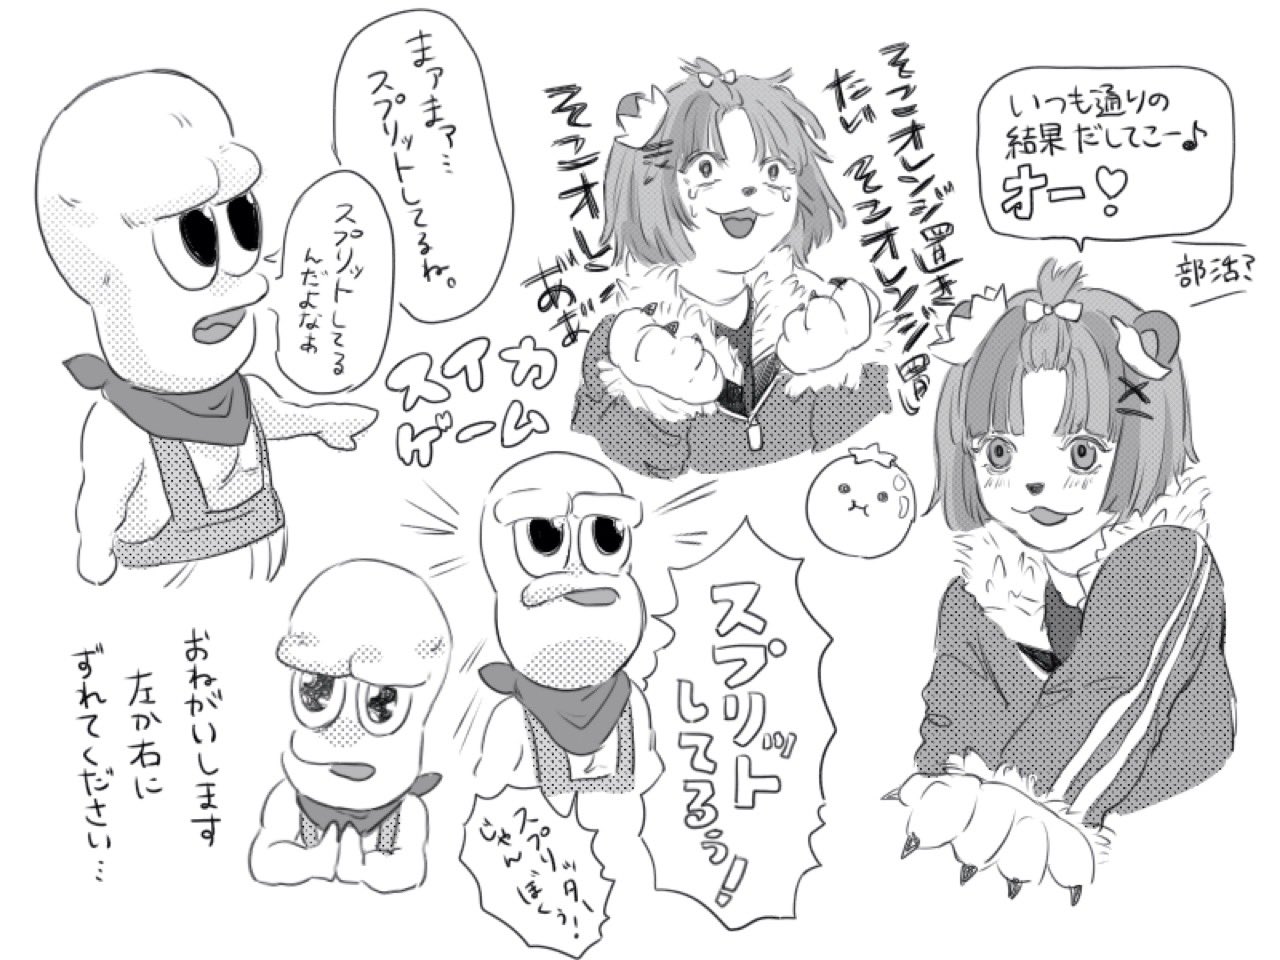 まァまァ…
スプリットしてるね。
スプリットしてる
んだよなぁ
スイカ
ゲーム
そこオレンジ置き
たい
そこオレンジ置
そこオレンジ
あぁ
いつも通りの
結果だしてこー♪
オー♡
部活?
おねがいします
左か右に
ずれてください…
スプリット
してるぅ!
スプリッター
じゃん
ぼくぅ!